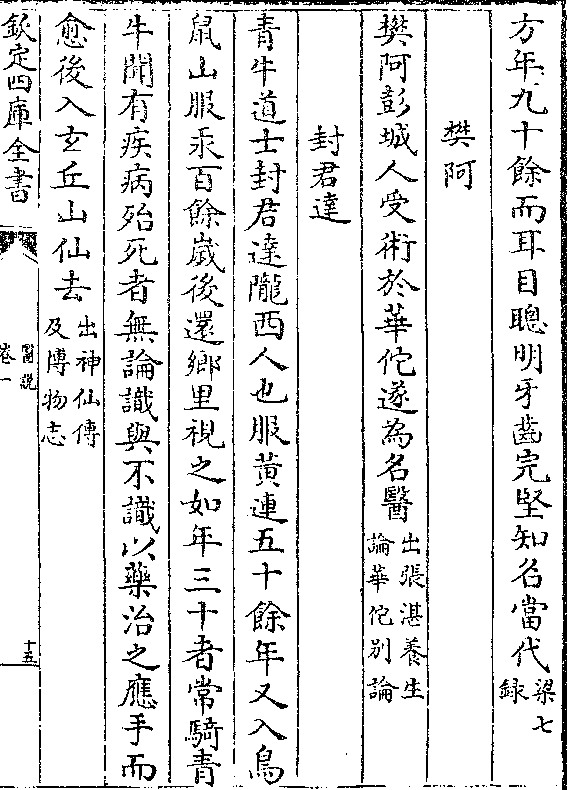 方年九十餘而耳目聰明牙齒完堅知名當代梁七
録
樊阿
樊阿彭城人受術於華佗遂為名醫出張湛養生
論華佗别論
封君達
青牛道士封君達隴西人也服黄連五十餘年又入鳥
鼠山服汞百餘嵗後還鄉里視之如年三十者常騎青
牛聞有疾病殆死者無論識與不識以藥治之應手而
愈後入玄丘山仙去出神仙傳
及博物志
欽定四庫全書
醫説
卷一
十五